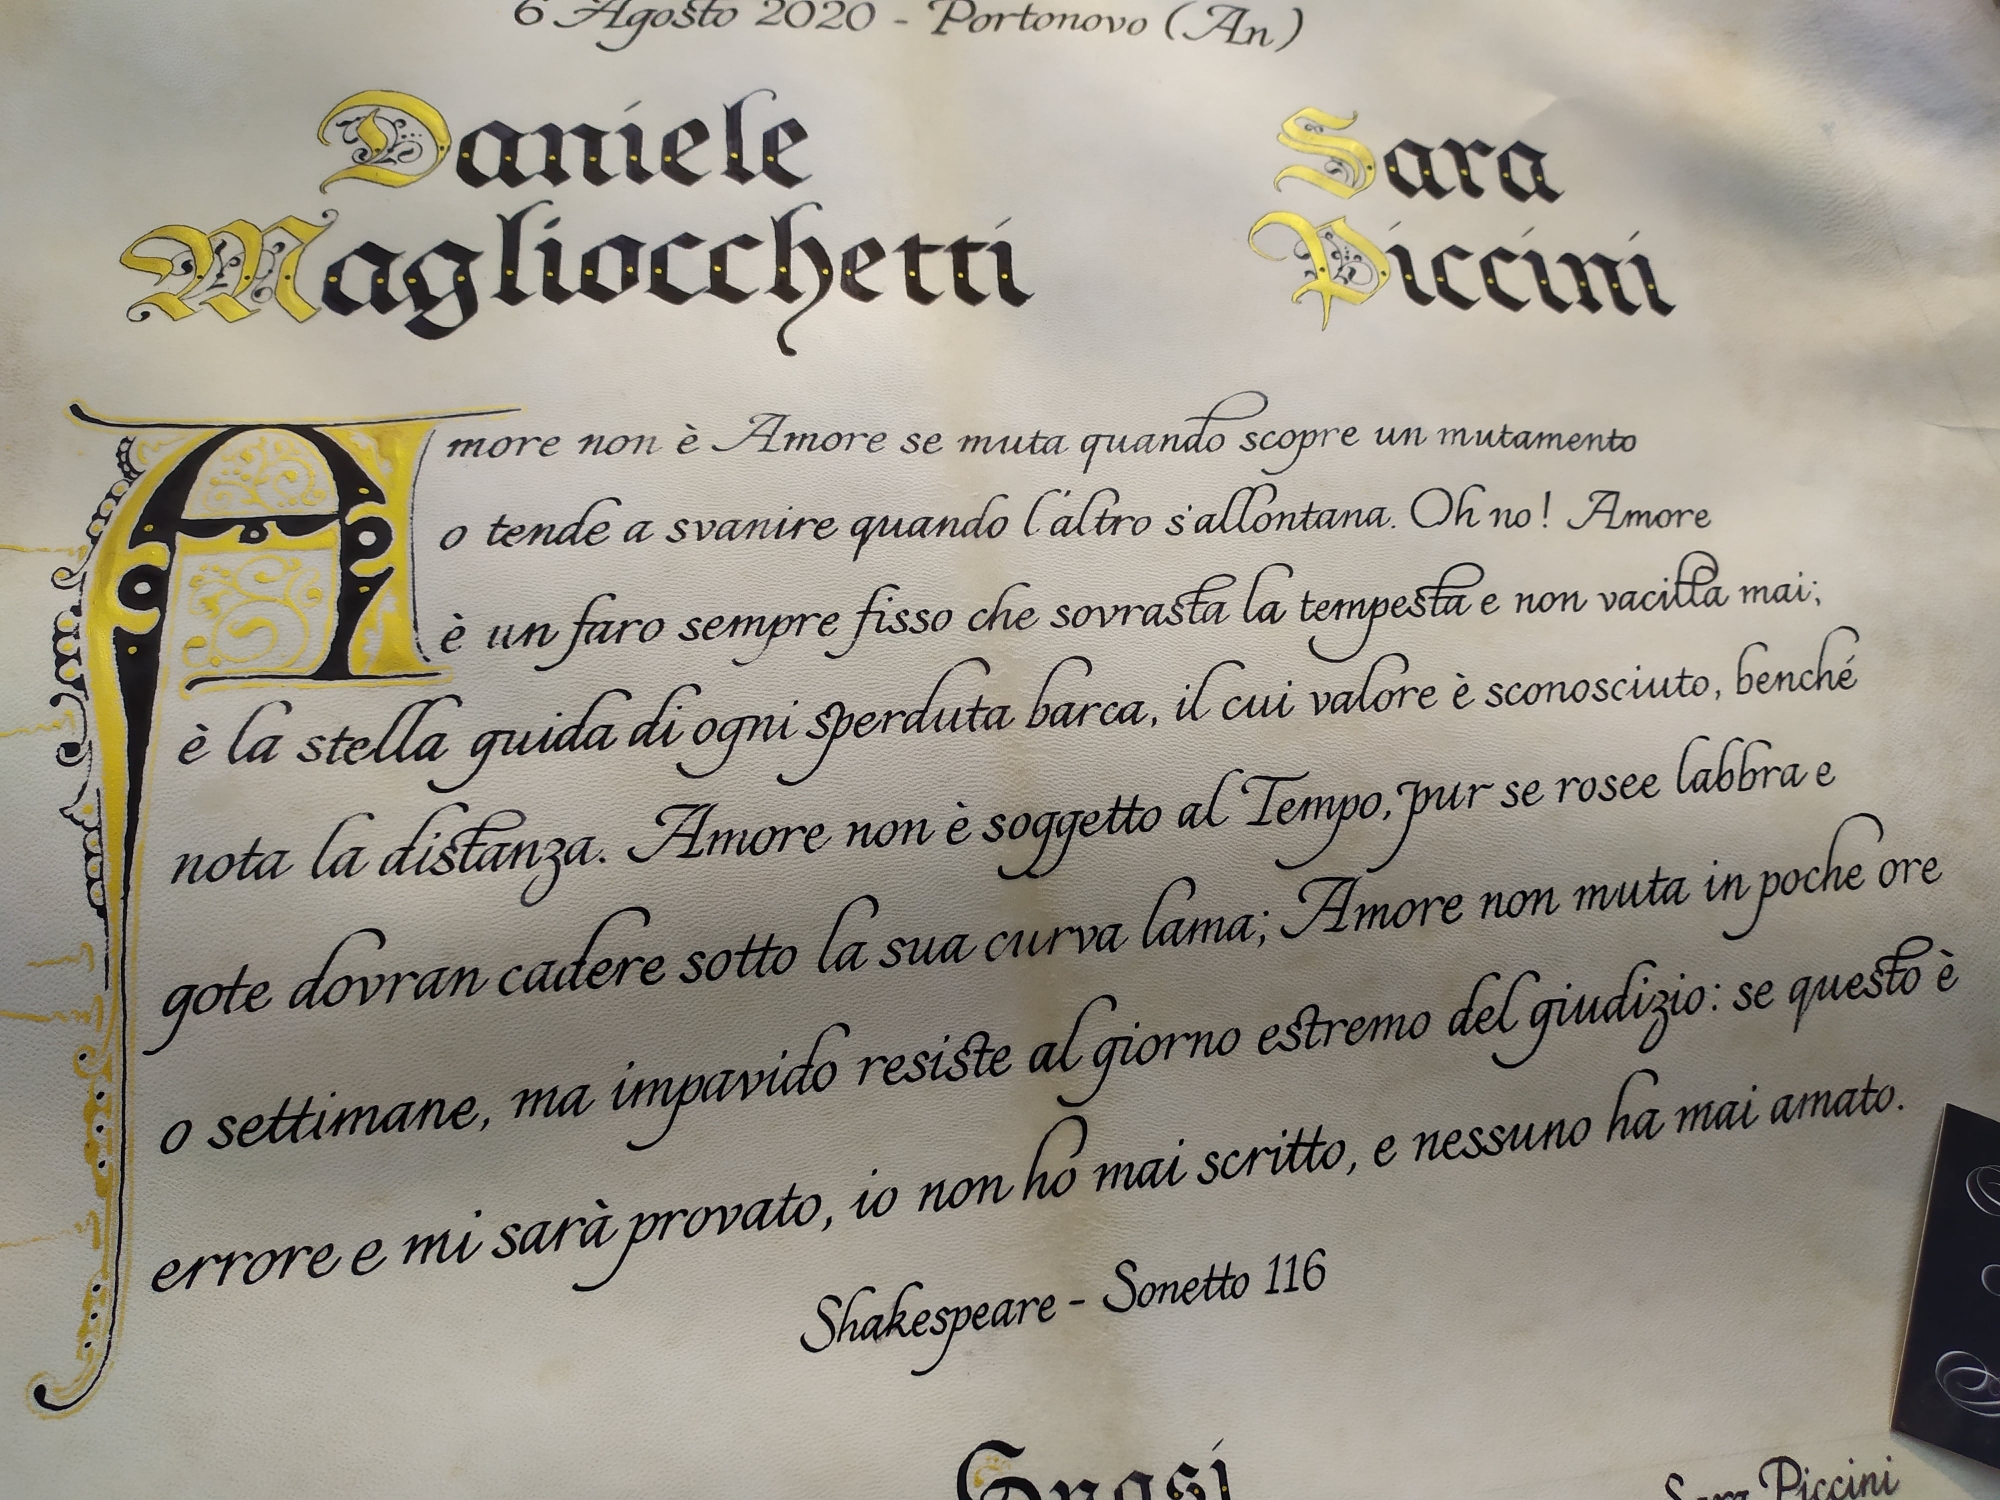 6 Agosto 2020 - Portonovo (An)
Daniele Sara
Magliocchetti Piccini
Amore non è Amore se muta quando scopre un mutamento
o tende a svanire quando l'altro s'allontana. Oh no! Amore
è un faro sempre fisso che sovrasta la tempesta e non vacilla mai;
è la stella guida di ogni sperduta barca, il cui valore è sconosciuto, benché
nota la distanza. Amore non è soggetto al Tempo, pur se rosee labbra e
gote dovran cadere sotto la sua curva lama; Amore non muta in poche ore
o settimane, ma impavido resiste al giorno estremo del giudizio: se questo è
errore e mi sarà provato, io non ho mai scritto, e nessuno ha mai amato.
Shakespeare - Sonetto 116
Sara Piccini